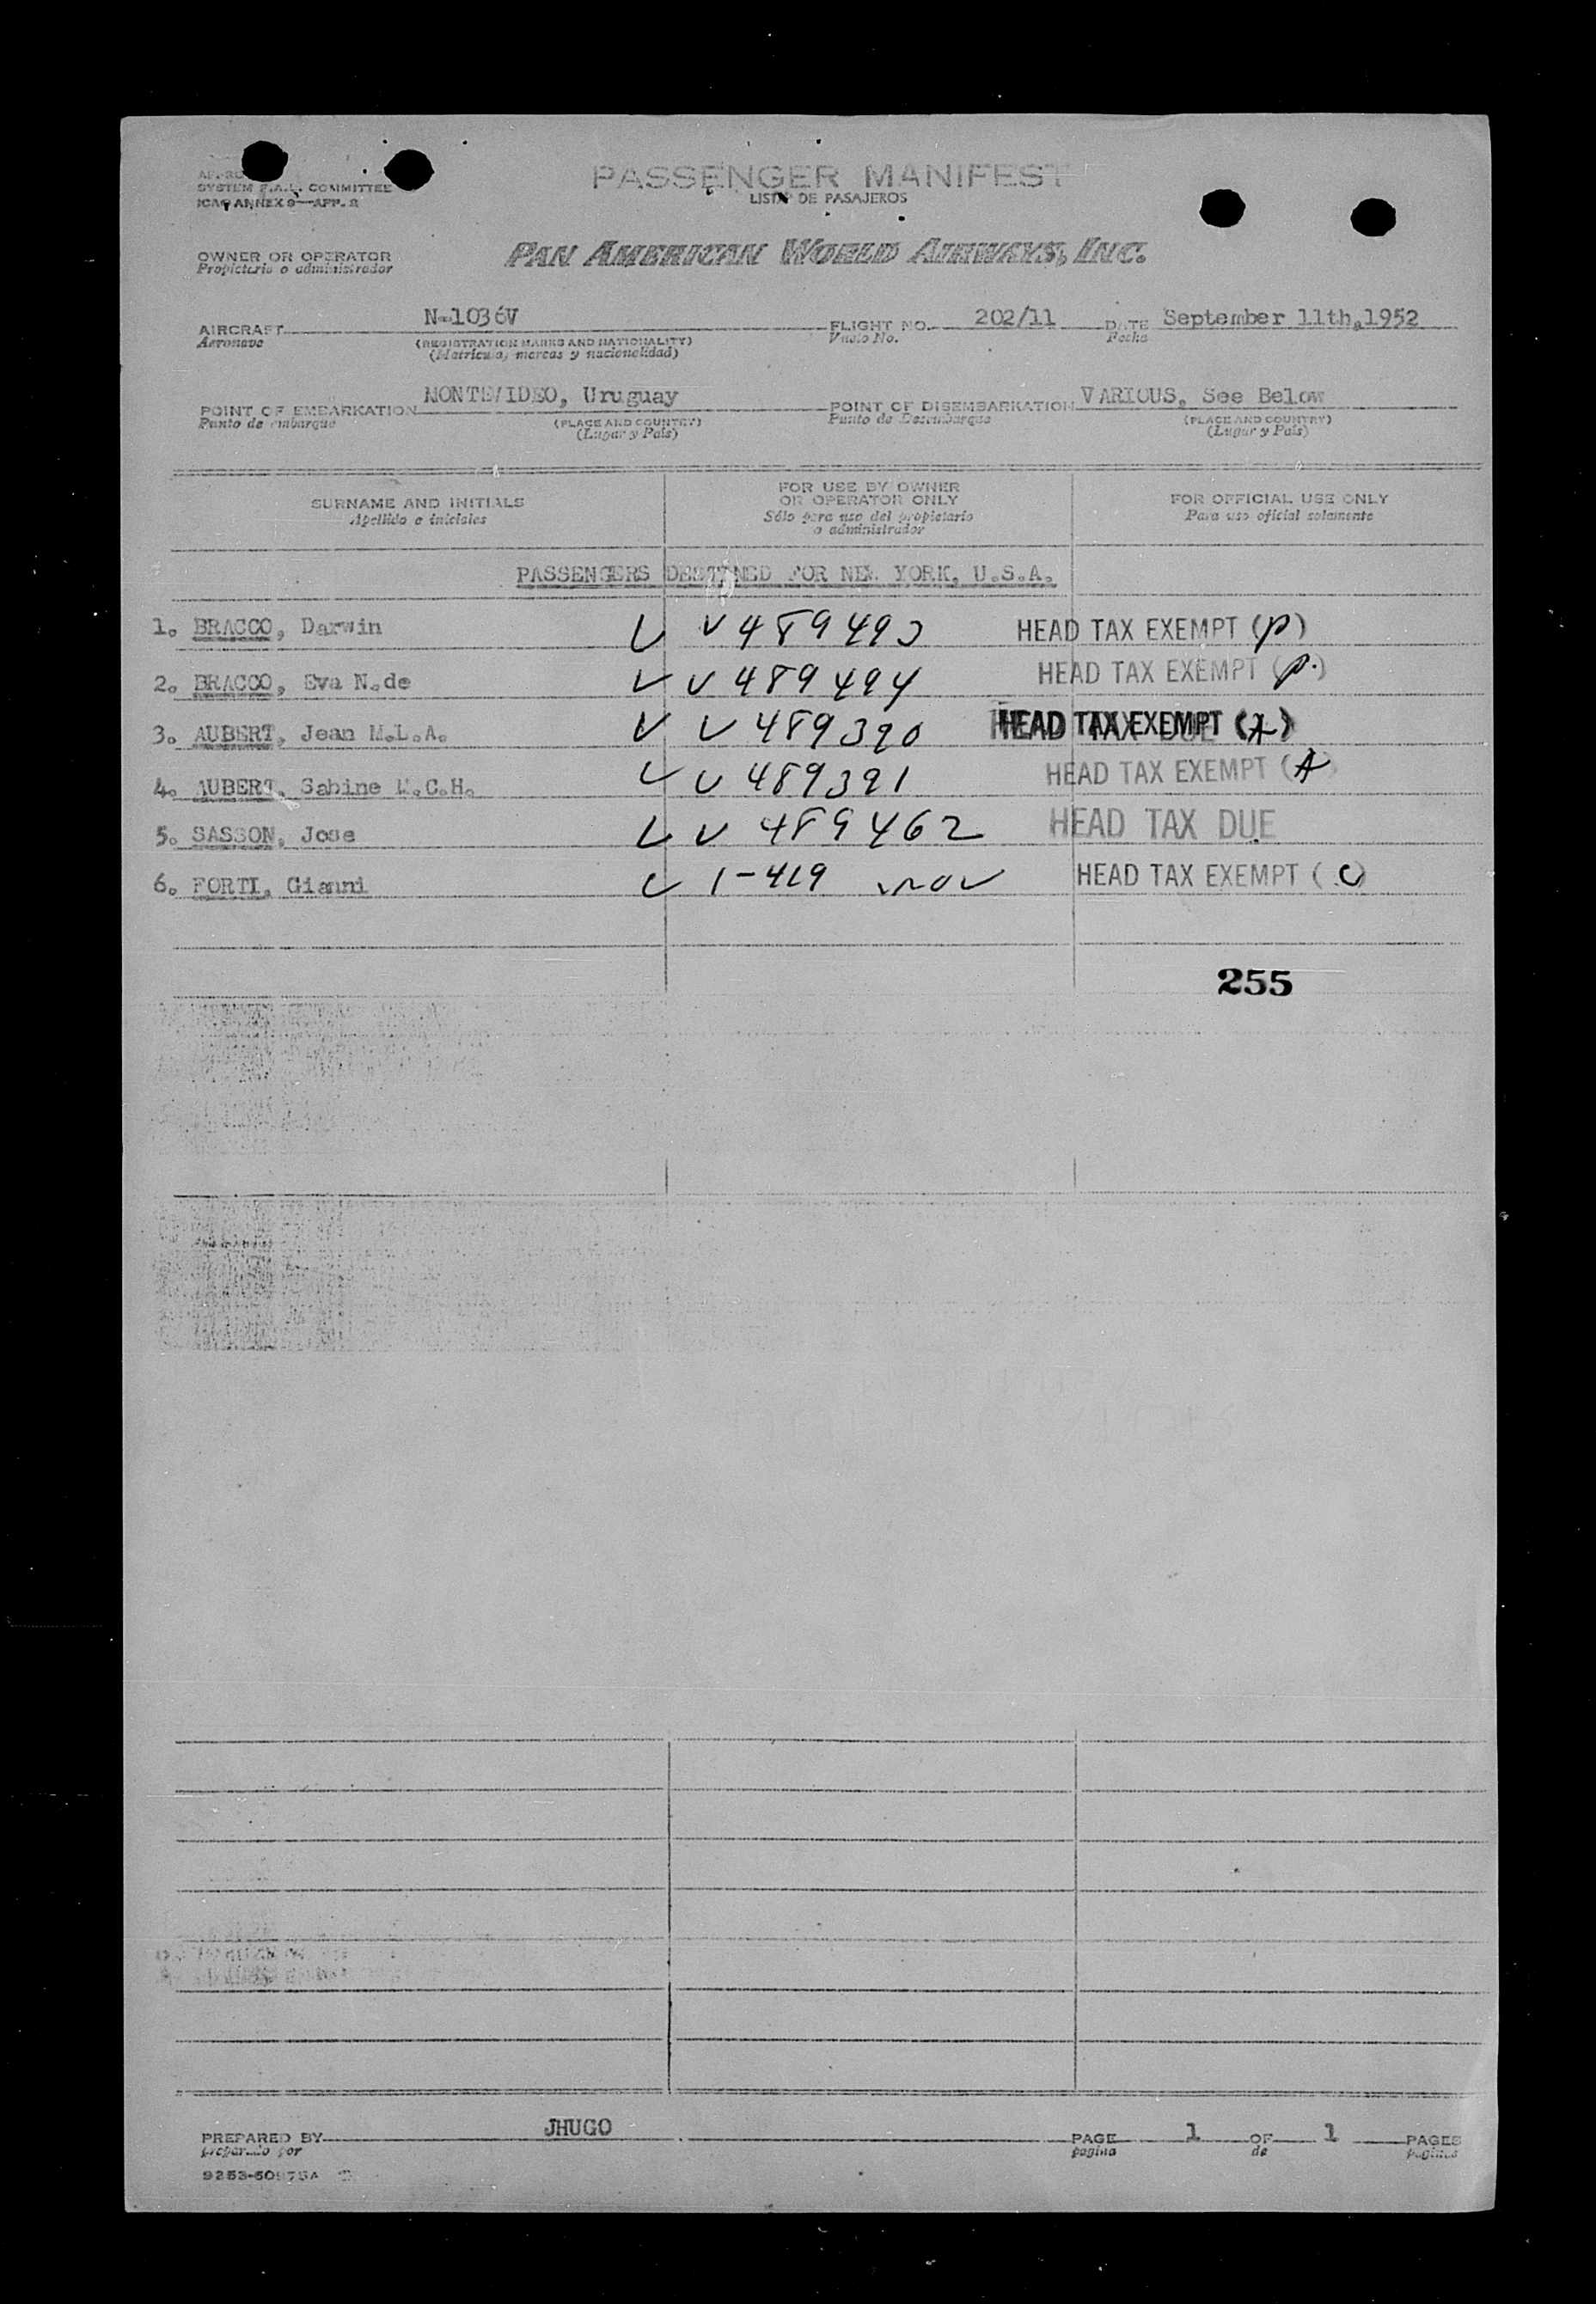 SYSTEM F.A.L. COMMITTEE
ICAO ANNEX 9—APP. 2
PASSENGER MANIFEST
LISTA DE PASAJEROS
OWNER OR OPERATOR
Propietario o administrador
PAN AMERICAN WORLD AIRWAYS, INC.
AIRCRAFT N-1036V FLIGHT NO. 202/11 DATE September 11th,1952
Aeronave (REGISTRATION MARKS AND NATIONALITY) Vuelo No. Fecha
(Matricula, marcas y nacionalidad)
POINT OF EMBARKATION MONTEVIDEO, Uruguay POINT OF DISEMBARKATION VARIOUS, See Below
Punto de embarque (PLACE AND COUNTRY) Punto de Desembarque (PLACE AND COUNTRY)
(Lugar y País) (Lugar y País)
SURNAME AND INITIALS
Apellido e iniciales
FOR USE BY OWNER
OR OPERATOR ONLY
Sólo para uso del propietario
o administrador
FOR OFFICIAL USE ONLY
Para uso oficial solamente
PASSENGERS DESTINED FOR NEW YORK, U.S.A.
1. BRACCO, Darwin V V 489493 HEAD TAX EXEMPT (P)
2. BRACCO, Eva N.de V V 489494 HEAD TAX EXEMPT (P.)
3. AUBERT, Jean M.L.A. V V 489390 HEAD TAX EXEMPT (A)
4. AUBERT, Sabine M.C.H. V V 489391 HEAD TAX EXEMPT (A)
5. SASSON, Jose V V 489462 HEAD TAX DUE
6. FORTI, Gianni V 1-419 HEAD TAX EXEMPT (C)
255
PREPARED BY JHUGO PAGE 1 OF 1 PAGES
preparado por pagina de paginas